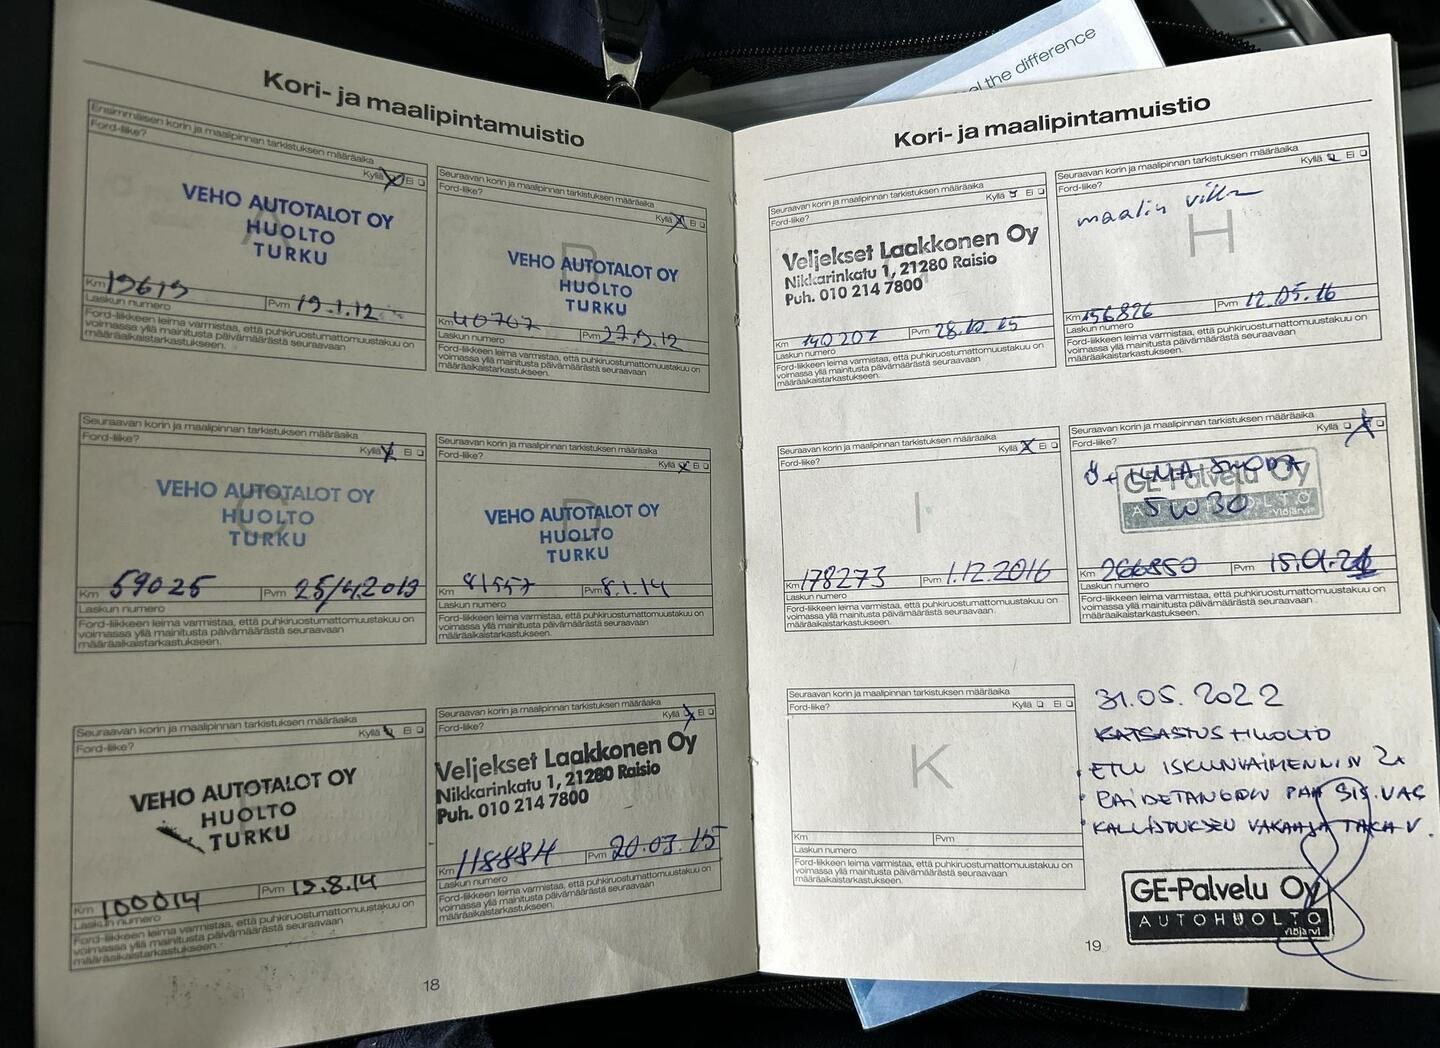 feel the difference
Kori- ja maalipintamuistio
Ensimmäisen korin ja maalipinnan tarkistuksen määräaika
Ford-liike?
Kyllä Ei
A
VEHO AUTOTALOT OY
HUOLTO
TURKU
Km 19619 Pvm 19.1.12
Laskun numero
Ford-liikkeen leima varmistaa, että puhkiruostumattomuustakuu on
voimassa yllä mainitusta päivämäärästä seuraavaan
määräaikaistarkastukseen.
Seuraavan korin ja maalipinnan tarkistuksen määräaika
Ford-liike?
Kyllä Ei
B
VEHO AUTOTALOT OY
HUOLTO
TURKU
Km 40767 Pvm 27.9.12
Laskun numero
Ford-liikkeen leima varmistaa, että puhkiruostumattomuustakuu on
voimassa yllä mainitusta päivämäärästä seuraavaan
määräaikaistarkastukseen.
Seuraavan korin ja maalipinnan tarkistuksen määräaika
Ford-liike?
Kyllä Ei
C
VEHO AUTOTALOT OY
HUOLTO
TURKU
Km 59025 Pvm 25/4.2013
Laskun numero
Ford-liikkeen leima varmistaa, että puhkiruostumattomuustakuu on
voimassa yllä mainitusta päivämäärästä seuraavaan
määräaikaistarkastukseen.
Seuraavan korin ja maalipinnan tarkistuksen määräaika
Ford-liike?
Kyllä Ei
D
VEHO AUTOTALOT OY
HUOLTO
TURKU
Km 81557 Pvm 8.1.14
Laskun numero
Ford-liikkeen leima varmistaa, että puhkiruostumattomuustakuu on
voimassa yllä mainitusta päivämäärästä seuraavaan
määräaikaistarkastukseen.
Seuraavan korin ja maalipinnan tarkistuksen määräaika
Ford-liike?
Kyllä Ei
VEHO AUTOTALOT OY
HUOLTO
TURKU
Km 100014 Pvm 15.8.14
Laskun numero
Ford-liikkeen leima varmistaa, että puhkiruostumattomuustakuu on
voimassa yllä mainitusta päivämäärästä seuraavaan
määräaikaistarkastukseen.
Seuraavan korin ja maalipinnan tarkistuksen määräaika
Ford-liike?
Kyllä Ei
Veljekset Laakkonen Oy
Nikkarinkatu 1, 21280 Raisio
Puh. 010 214 7800
Km 118884 Pvm 20.03.15
Laskun numero
Ford-liikkeen leima varmistaa, että puhkiruostumattomuustakuu on
voimassa yllä mainitusta päivämäärästä seuraavaan
määräaikaistarkastukseen.
18
Kori- ja maalipintamuistio
Seuraavan korin ja maalipinnan tarkistuksen määräaika
Ford-liike?
Kyllä Ei
Veljekset Laakkonen Oy
Nikkarinkatu 1, 21280 Raisio
Puh. 010 214 7800
Km 140207 Pvm 28.10.15
Laskun numero
Ford-liikkeen leima varmistaa, että puhkiruostumattomuustakuu on
voimassa yllä mainitusta päivämäärästä seuraavaan
määräaikaistarkastukseen.
Seuraavan korin ja maalipinnan tarkistuksen määräaika
Ford-liike?
Kyllä Ei
maalin
H
Km 156826 Pvm 12.05.16
Laskun numero
Ford-liikkeen leima varmistaa, että puhkiruostumattomuustakuu on
voimassa yllä mainitusta päivämäärästä seuraavaan
määräaikaistarkastukseen.
Seuraavan korin ja maalipinnan tarkistuksen määräaika
Ford-liike?
Kyllä Ei
I
Km 178273 Pvm 1.12.2016
Laskun numero
Ford-liikkeen leima varmistaa, että puhkiruostumattomuustakuu on
voimassa yllä mainitusta päivämäärästä seuraavaan
määräaikaistarkastukseen.
Seuraavan korin ja maalipinnan tarkistuksen määräaika
Ford-liike?
Kyllä
GE-Palvelu Oy
AUTOHUOLTO
Ylöjärvi
5W30
Km Pvm
Laskun numero
Ford-liikkeen leima varmistaa, että puhkiruostumattomuustakuu on
voimassa yllä mainitusta päivämäärästä seuraavaan
määräaikaistarkastukseen.
Seuraavan korin ja maalipinnan tarkistuksen määräaika
Ford-liike?
Kyllä Ei
K
Km Pvm
Laskun numero
Ford-liikkeen leima varmistaa, että puhkiruostumattomuustakuu on
voimassa yllä mainitusta päivämäärästä seuraavaan
määräaikaistarkastukseen.
31.05.2022
KATSASTUSHUOLTO
ETU ISKUNVAIMENNIN 2x
RAIDETANGON PÄÄ SIS. VAS
KALLISTUKSEN VAKAAJA TAKA V.
GE-Palvelu Oy
AUTOHUOLTO
Ylöjärvi
19